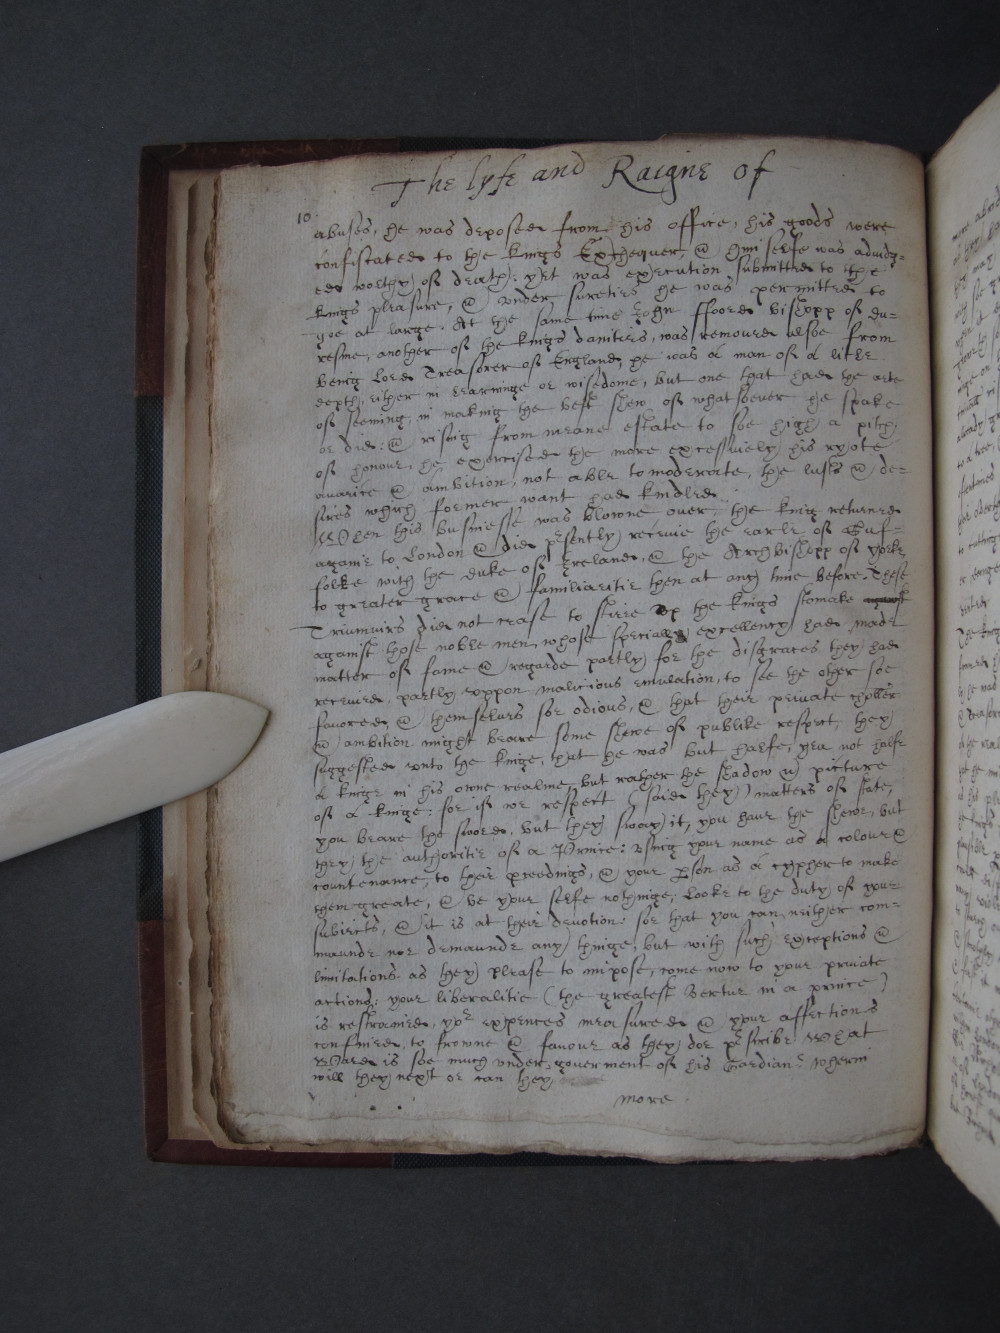 The lyfe and Raigne of
10
abuses, he was deposed from his office, his goods were
confiscated to the kings Exchequer, & himselfe was adiudg-
ed worthy of death: yet was execution submitted to the
kings pleasure, & under sureties he was permitted to
goe at large. At the same time John ffoord Bishopp of du=
resme, another of the kings dainties, was remoued alsoe from
being lord Treasorer of England, he was a man of a litle
depth, either in learninge or wisedome, but one that had the arte
of seoming, in making the best shew of whatsoever he spake
or did: & rising from meane estate to soe high a pitch
of honour, he exercised the more excessively his ryote
auarice & ambition, not able to moderate, the lusts & de=
sires which former want had kindled.
When this businesse was blowne over, the king returned
againe to London & did presently receiue the earle of Suf=
folke with the duke of Ireland, & the Archbishopp of yorke
to greater grace & familiaritie then at any time before. These
Triumuirs did not cease to stirre vp the kings stomake
against those noble men, whose speciall excellency had made
matter of fame & regarde partly for the disgraces they had
receiued, partly vppon malicious emulation, to see the other soe
favored, & themselues soe odious, & that their private choller
& ambition might beare some shewe of publike respect, they
suggested unto the kinge, that he was but halfe, yea not halfe
a kinge in his owne realme, but rather the shadow & picture
of a kinge: for if we respect (said they) matters of state,
you beare the sword, but they sway it, you haue the shew, but
they the authoritie of a Prince: vsing your name as a colour &
countenance, to their proceedings, & your person as a cypher to make
them greate, & be your selfe nothinge, Looke to the duty of your
subiects, & it is at their deuotion: soe that you can neither com=
maunde nor demaunde any thinge, but with such exceptions &
limitations as they please to impose, come now to your private
actions: your liberalitie (the greatest vertue in a prince)
is restrained, yor expences measured & your affections
confined, to frowne & fauour as they doe prscribe. What
Ward is soe much under gouerment of his Gardian? wherin
will they next or can they
more